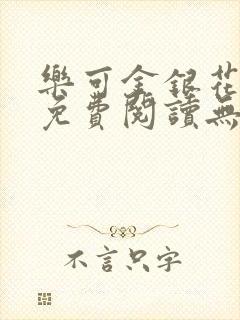 樂可金銀花
免費閱讀無
不言只字